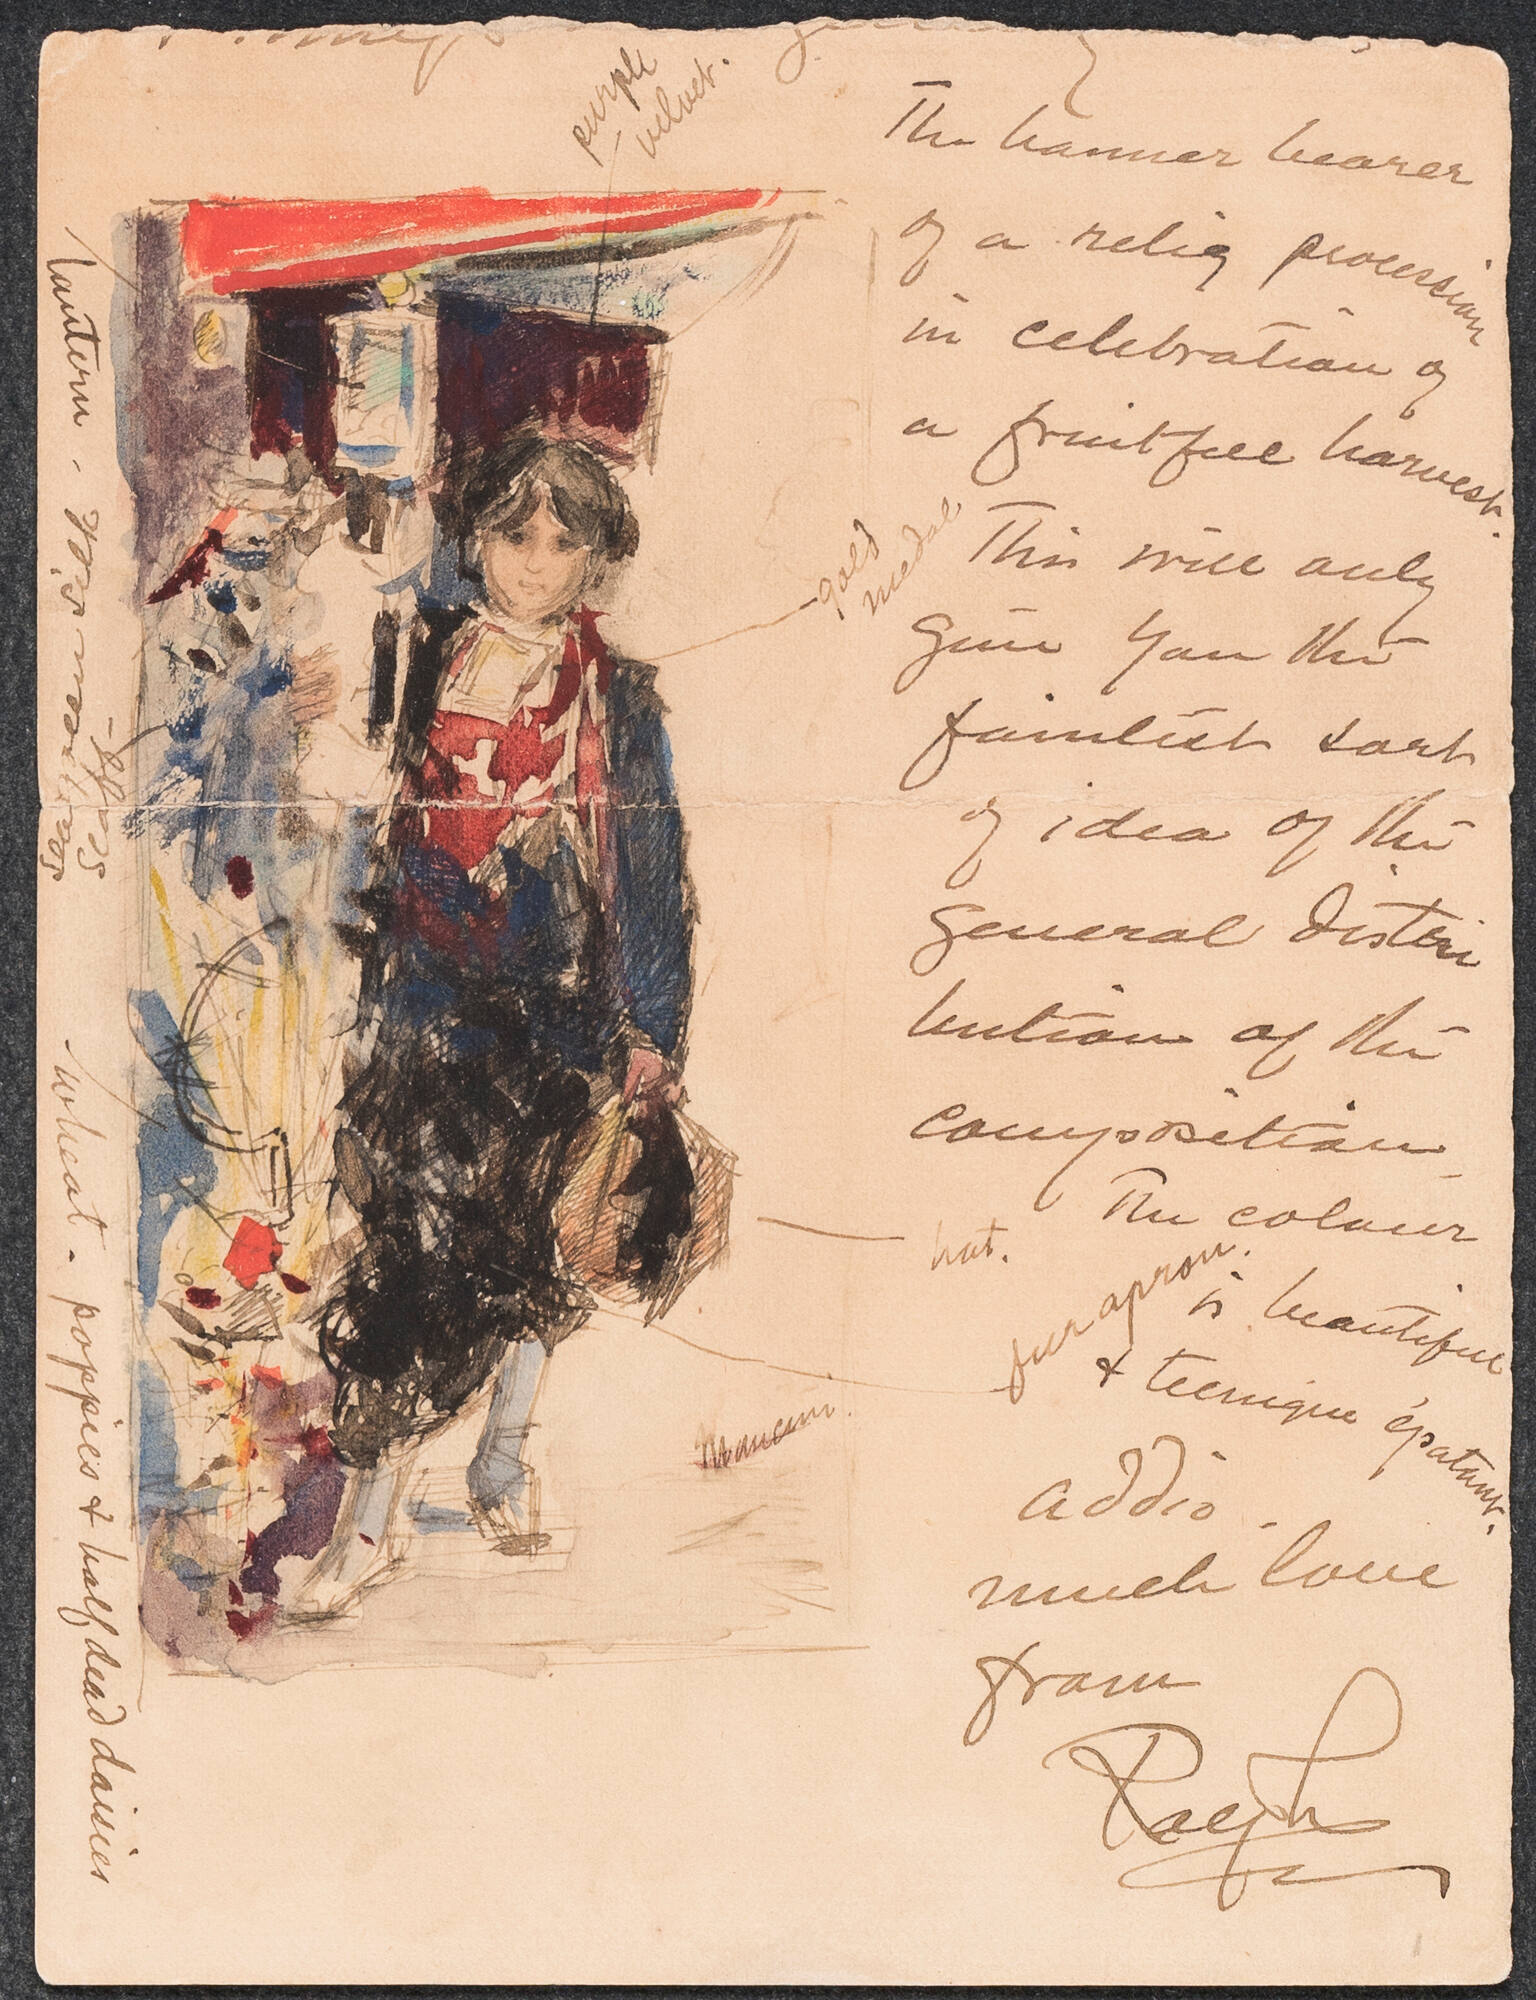 purple
velvet.
The banner bearer
of a relig procession
in celebration of
a fruitful harvest.
gold
medal
This will only
give you the
faintest sort
of idea of the
general distri
bution of the
composition
The colour
is beautiful
& tecnique épatant.
hat.
fur apron.
Mancini.
addio.
much love
from
Ralph
lantern.
wheat. poppies & half dead daisies